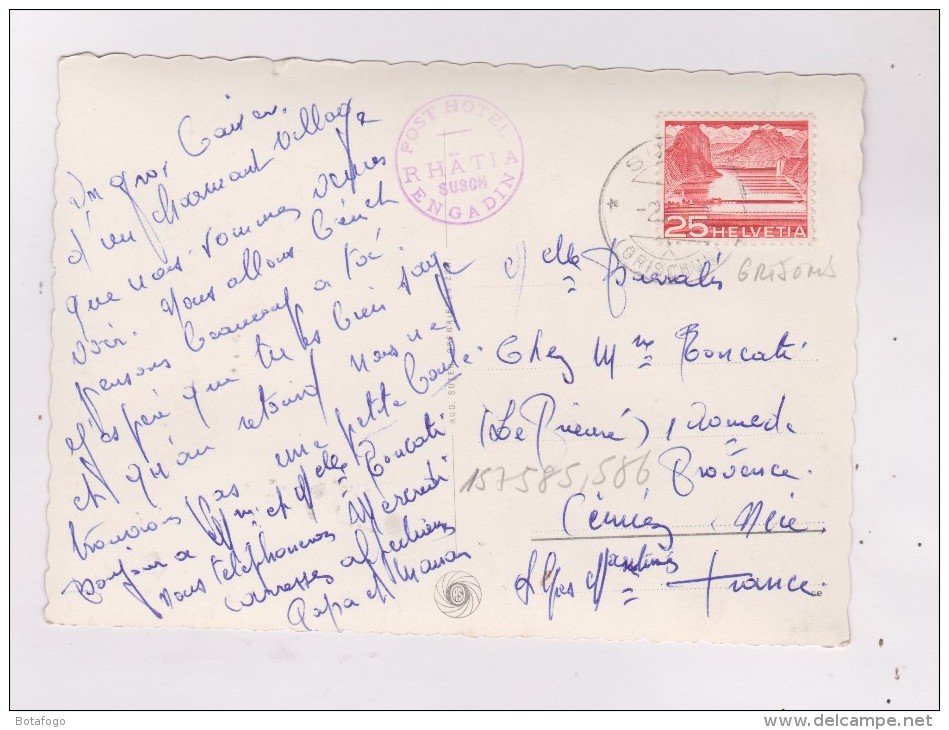 Un gros baiser
d'un charmant village
que nous sommes venus
voir. Nous allons bien et
pensons beaucoup a toi.
J'espère que tu es bien sage
et qu'au retour nous ne
trouvions pas une petite boule.
Bonjour a Mr. et Mlle Toncati
nous téléphonerons Mercredi
caresses affectueuses
Papa et Maman
POST HOTEL
RHÄTIA
SUSCH
ENGADIN
25 HELVETIA
(GRISCHUN)
GRISONS
Mlle
Chez Mme Toncati
(Le Prieuré), 1
Provence
157585,586
Cimiez Nice
Alpes Maritimes France
Botafogo
www.delcampe.net